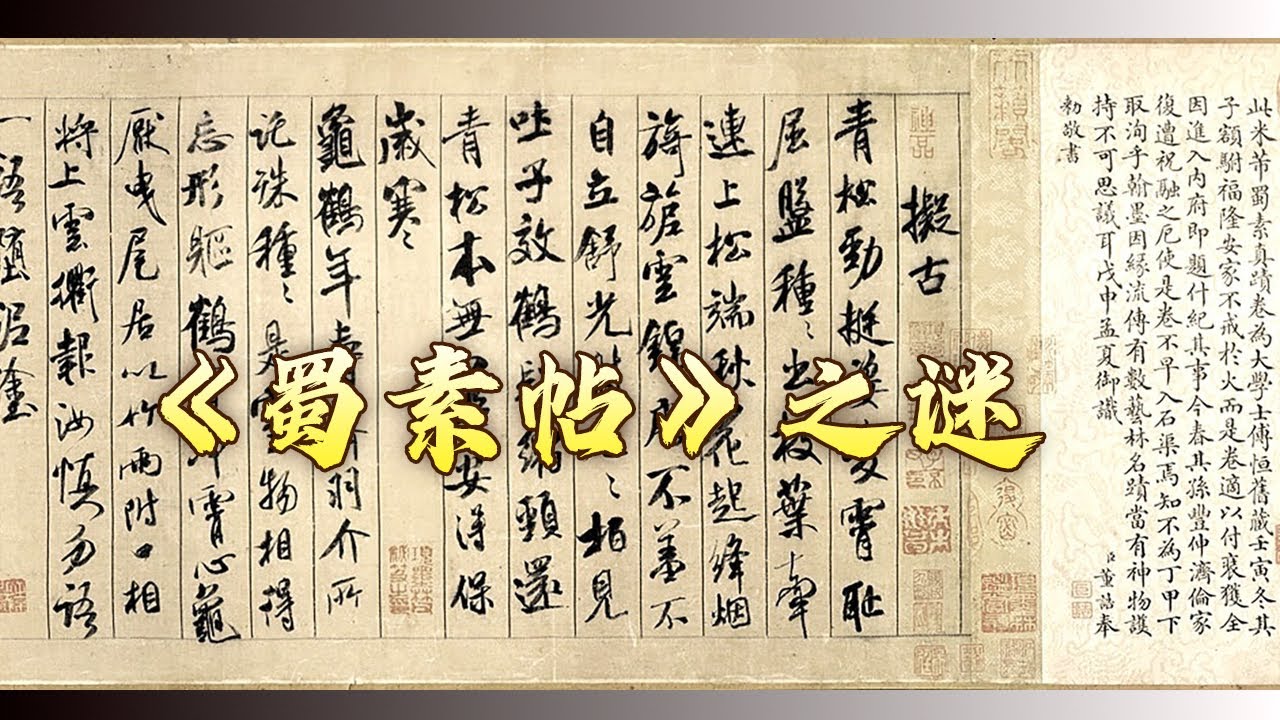 《蜀素帖》之谜
此米芾蜀素真蹟卷為大學士傅恒舊藏壬寅冬其
子額駙福隆安家不戒於火而是卷適以付裝獲全
因進入內府即題什紀其事今春其孫豐仲濟倫家
復遭祝融之厄使是卷不早入石渠焉知不為丁甲下
取洵乎翰墨因緣流傳有數藝林名蹟當有神物護
持不可思議耳戊申孟夏御識 臣董誥奉
勅敬書
擬古
青松勁挺姿霄耻
屈盤種〻出枝葉牽
連上松端秋花起絳烟
旖旎雲錦殷不羞不
自立舒光〻柏見
吐子效鶴縮頸還
青松本無安得保
歲寒〻
龜鶴年壽羽介所
託殊種〻是物相得
忘形軀鶴霄心龜
厭曳尾居以竹兩附口相
將上雲衢報汝慎勿語
一語墮泥塗